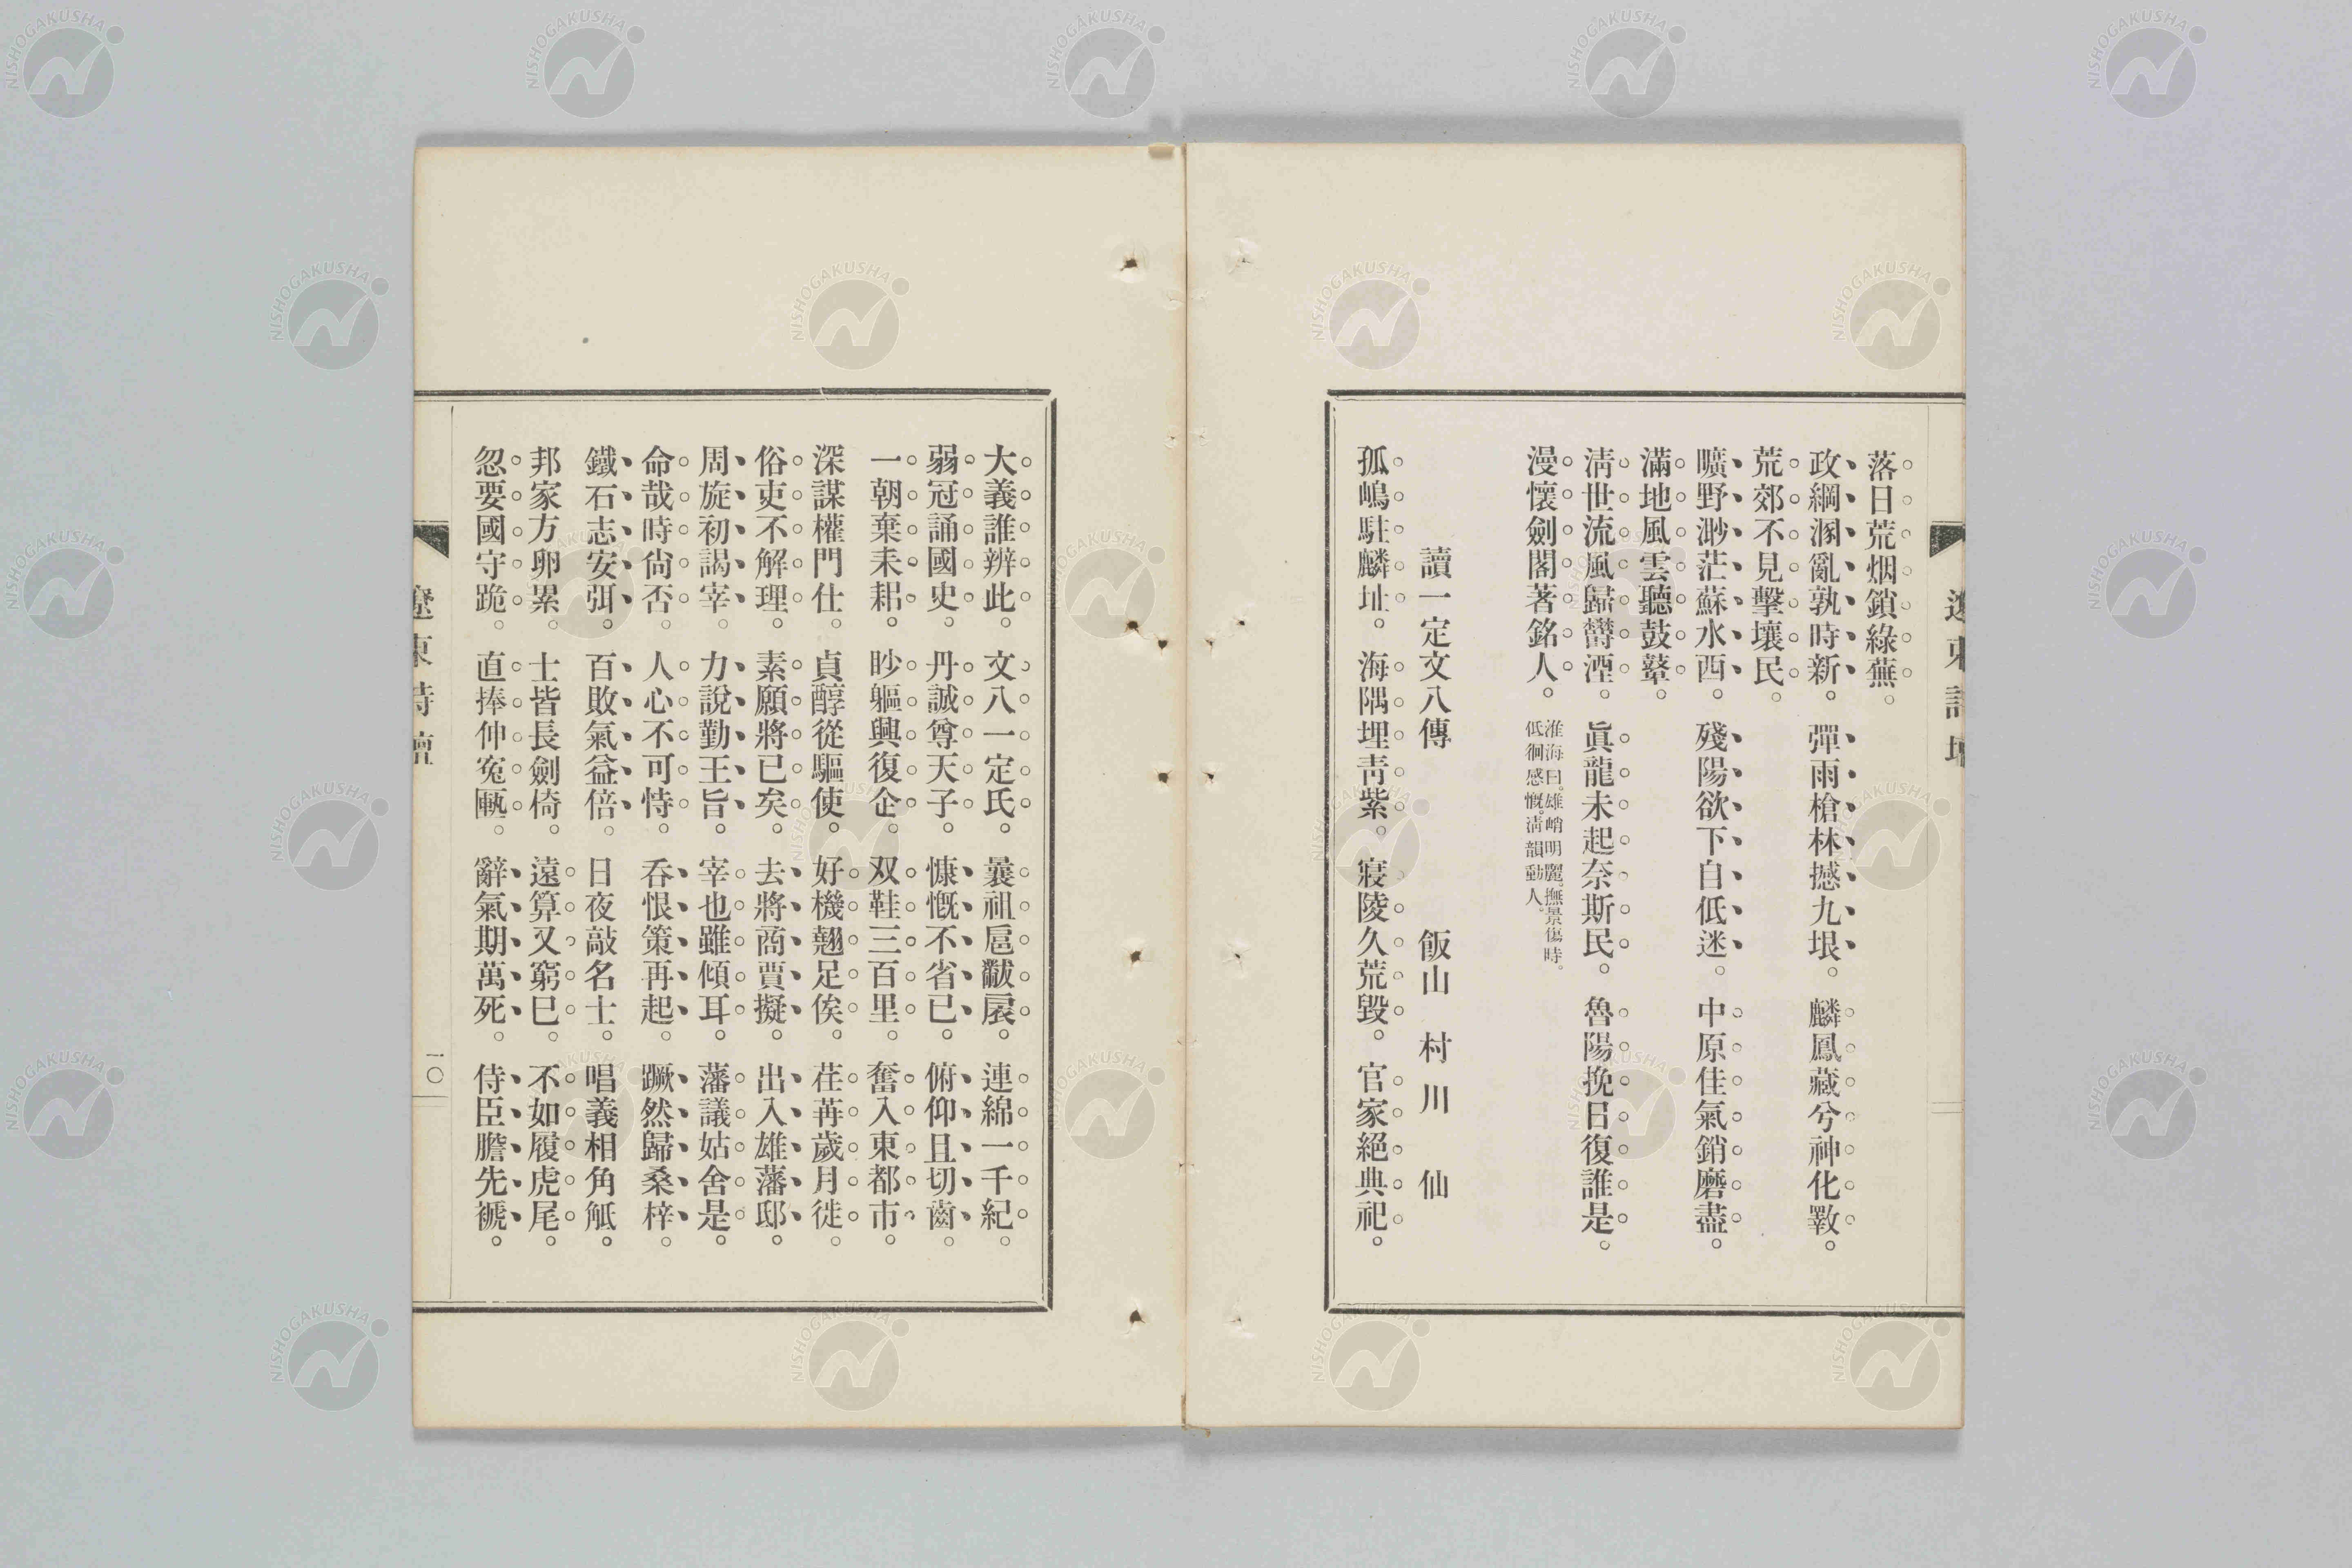 落日荒烟鎖綠蕪。
政綱溷亂孰時新。彈雨槍林撼九垠。麟鳳藏兮神化斁。
荒郊不見擊壤民。
曠野渺茫蘇水西。殘陽欲下白低迷。中原佳氣銷磨盡。
滿地風雲聽鼓鼙。
淸世流風歸欝湮。眞龍未起奈斯民。魯陽挽日復誰是。
漫懷劍閣著銘人。淮海曰。雄峭明麗。撫景傷時。
低徊感慨。淸韻動人。
讀一定文八傳 飯山 村川 仙
孤嶋駐麟址。海隅埋靑紫。寢陵久荒毀。官家絕典祀。
大義誰辨此。文八一定氏。曩祖扈黻扆。連綿一千紀。
弱冠誦國史。丹誠尊天子。慷慨不省已。俯仰且切齒。
一朝棄耒耜。眇軀興復企。双鞋三百里。奮入東都市。
深謀權門仕。貞醇從驅使。好機翹足俟。荏苒歲月徙。
俗吏不解理。素願將已矣。去將商賈擬。出入雄藩邸。
周旋初謁宰。力說勤王旨。宰也雖傾耳。藩議姑舍是。
命哉時尙否。人心不可恃。呑恨策再起。蹶然歸桑梓。
鐵石志安弭。百敗氣益倍。日夜敲名士。唱義相角觝。
邦家方卵累。士皆長劍椅。遠算又窮巳。不如履虎尾。
忽要國守跪。直捧仲寃匭。辭氣期萬死。侍臣膽先褫。
遼東詩壇
一〇